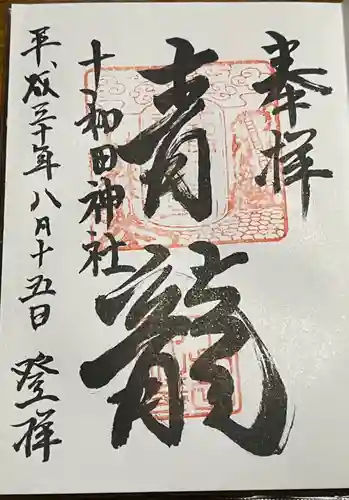 奉拝
青龍
十和田神社
平成三十年八月十五日
登拝